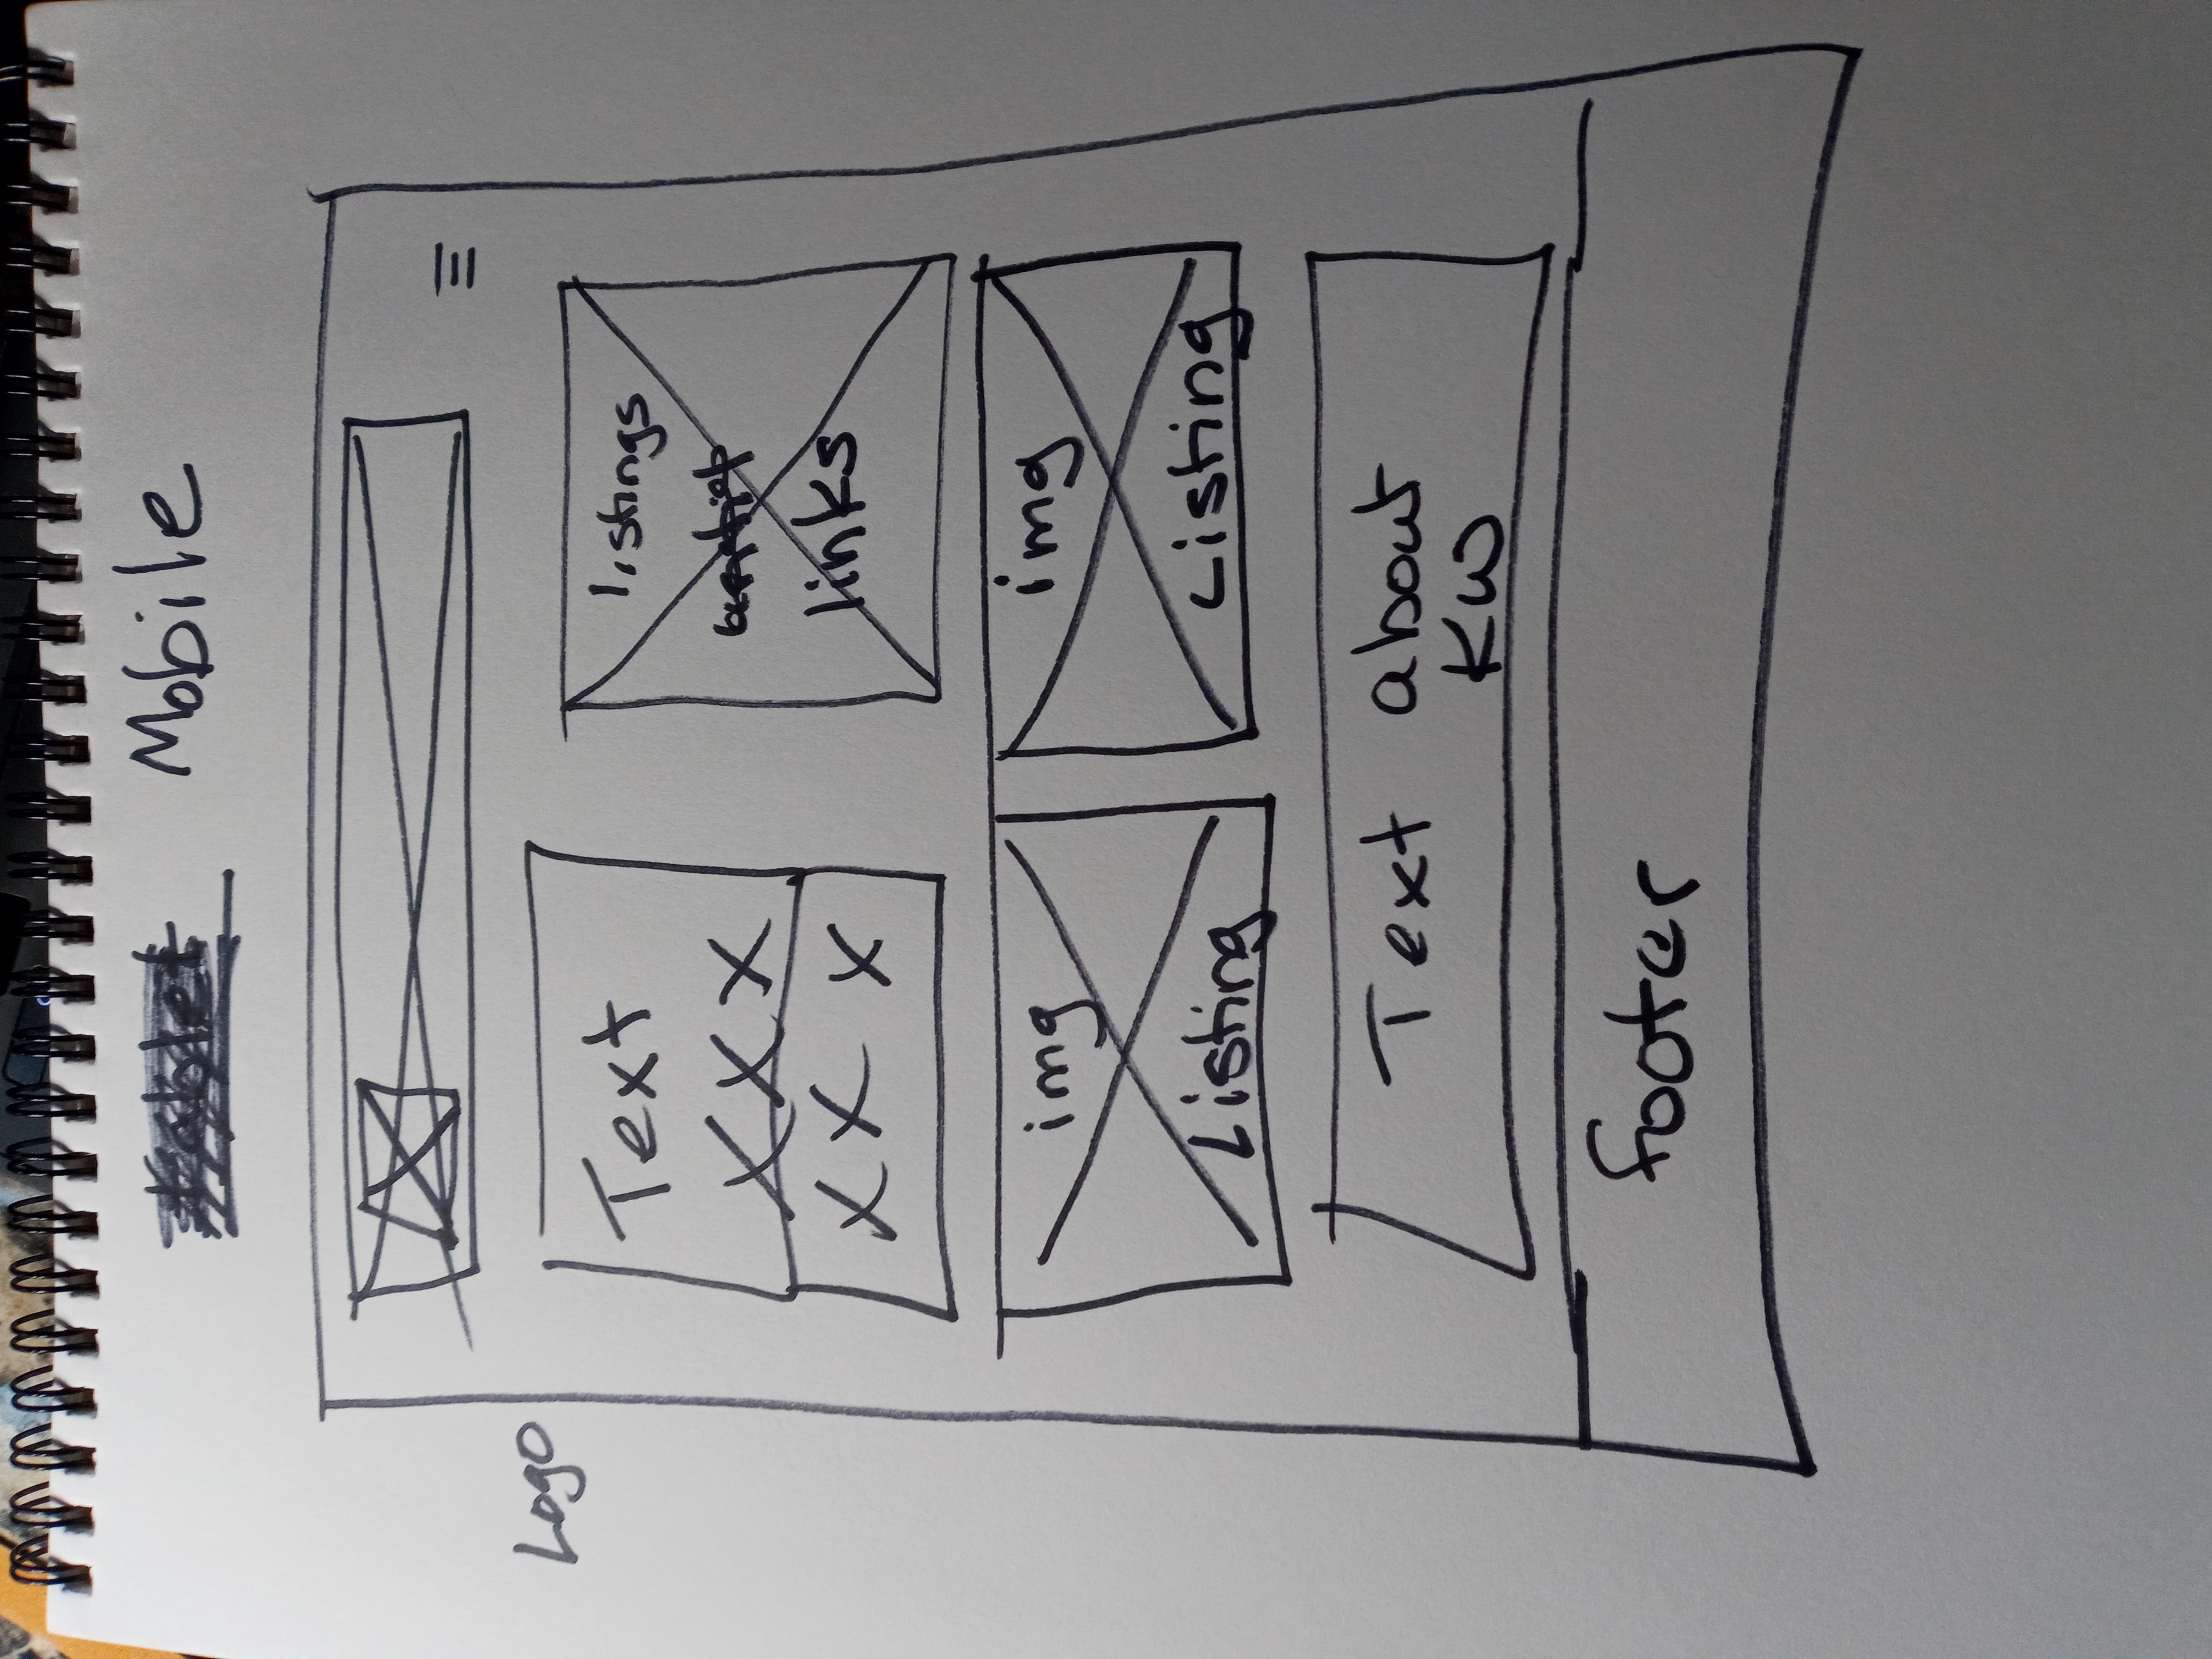 Mobile
Logo
Text
X X X
X X X
listings
links
img
Listing
img
Listing
Text about
KW
footer